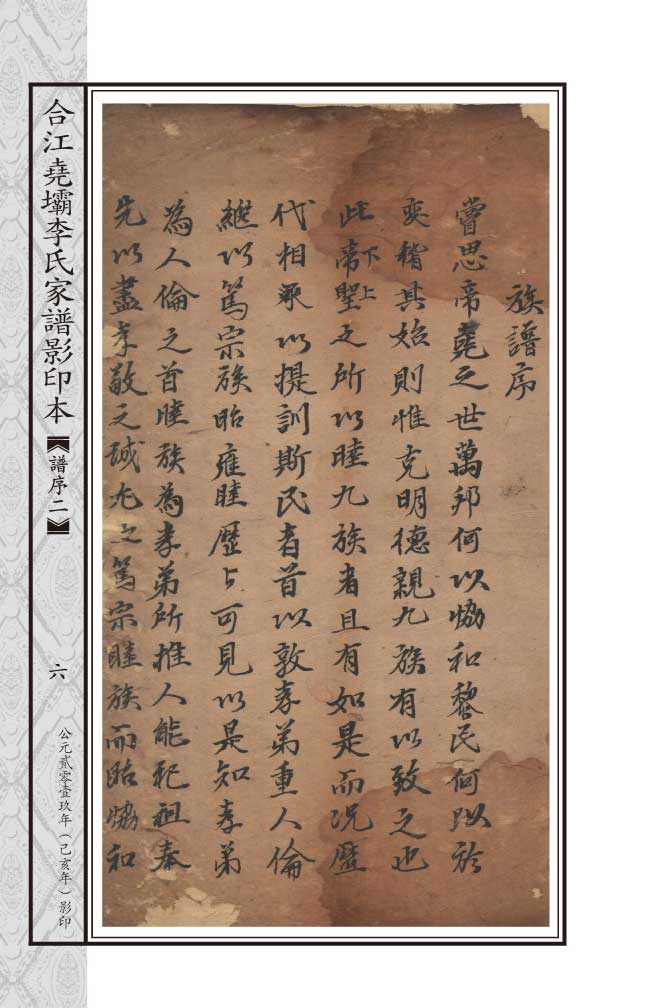 族譜序
嘗思帝堯之世萬邦何以恊和黎民何以於
変稽其始則惟克明德親九族有以致之也
此帝聖之所以睦九族者且有如是而况歷
下上
代相承以提訓斯民者首以敦孝弟重人倫
繼以篤宗族昭雍睦歷々可見以是知孝弟
為人倫之首睦族為孝弟所推人能祀祖奉
先以盡孝敬之誠尤之篤宗睦族而昭恊和
合江堯壩李氏家譜影印本【譜序二】
六
公元貳零壹玖年（己亥年）影印